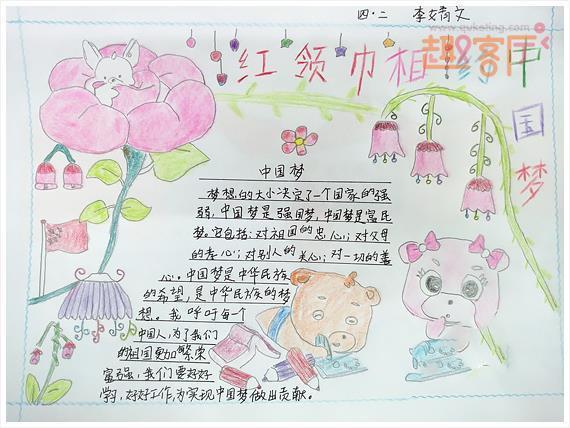 四.二 李婧文
红领巾相约中国梦
中国梦
梦想的大小决定了一个国家的强
弱,中国梦是强国梦,中国梦是富民
梦。它包括:对祖国的忠心;对父母
的孝心;对别人的关心;对一切的善
心。中国梦是中华民族
的希望,是中华民族的梦
想。我呼吁每一个
中国人,为了我们
的祖国更加繁荣
富强,我们要好好
学习,好好工作,为实现中国梦做出贡献。